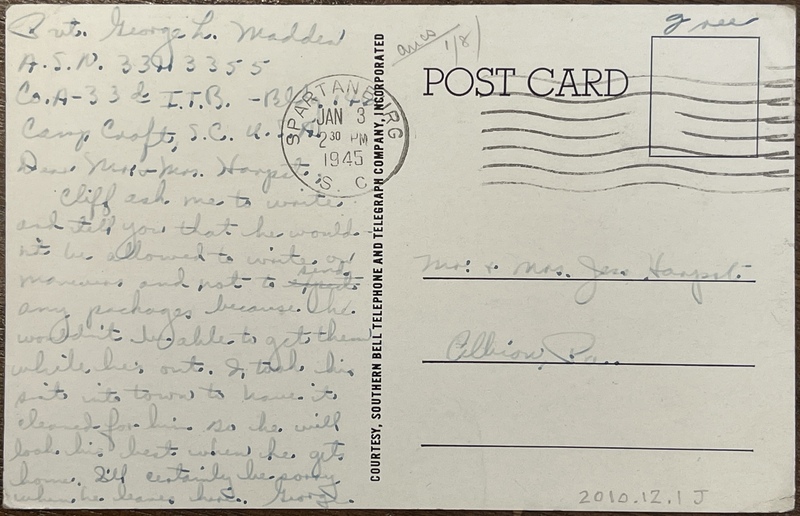 Pvt. George L. Madden
A.S.N. 33413355
Co. A-33d I.T.B. - Bldg.
Camp Croft, S.C. U.S.A.
Dear Mr. & Mrs. Harpst:
Cliff ask me to write
and tell you that he would-
n't be allowed to write on
send
manuvers and not to
any packages because he
wouldn't be able to get them
while he's out. I took his
suit into town to have it
cleaned for him so he will
look his best when he gets
home. I'll certainly be sorry
when he leaves here. George.
SPARTANBURG
JAN 3
2 30 PM
1945
S. C.
COURTESY, SOUTHERN BELL TELEPHONE AND TELEGRAPH COMPANY, INCORPORATED
ans
1/8
free
POST CARD
Mr. & Mrs. Jess Harpst.
Albion, Pa.
2010.12.1J